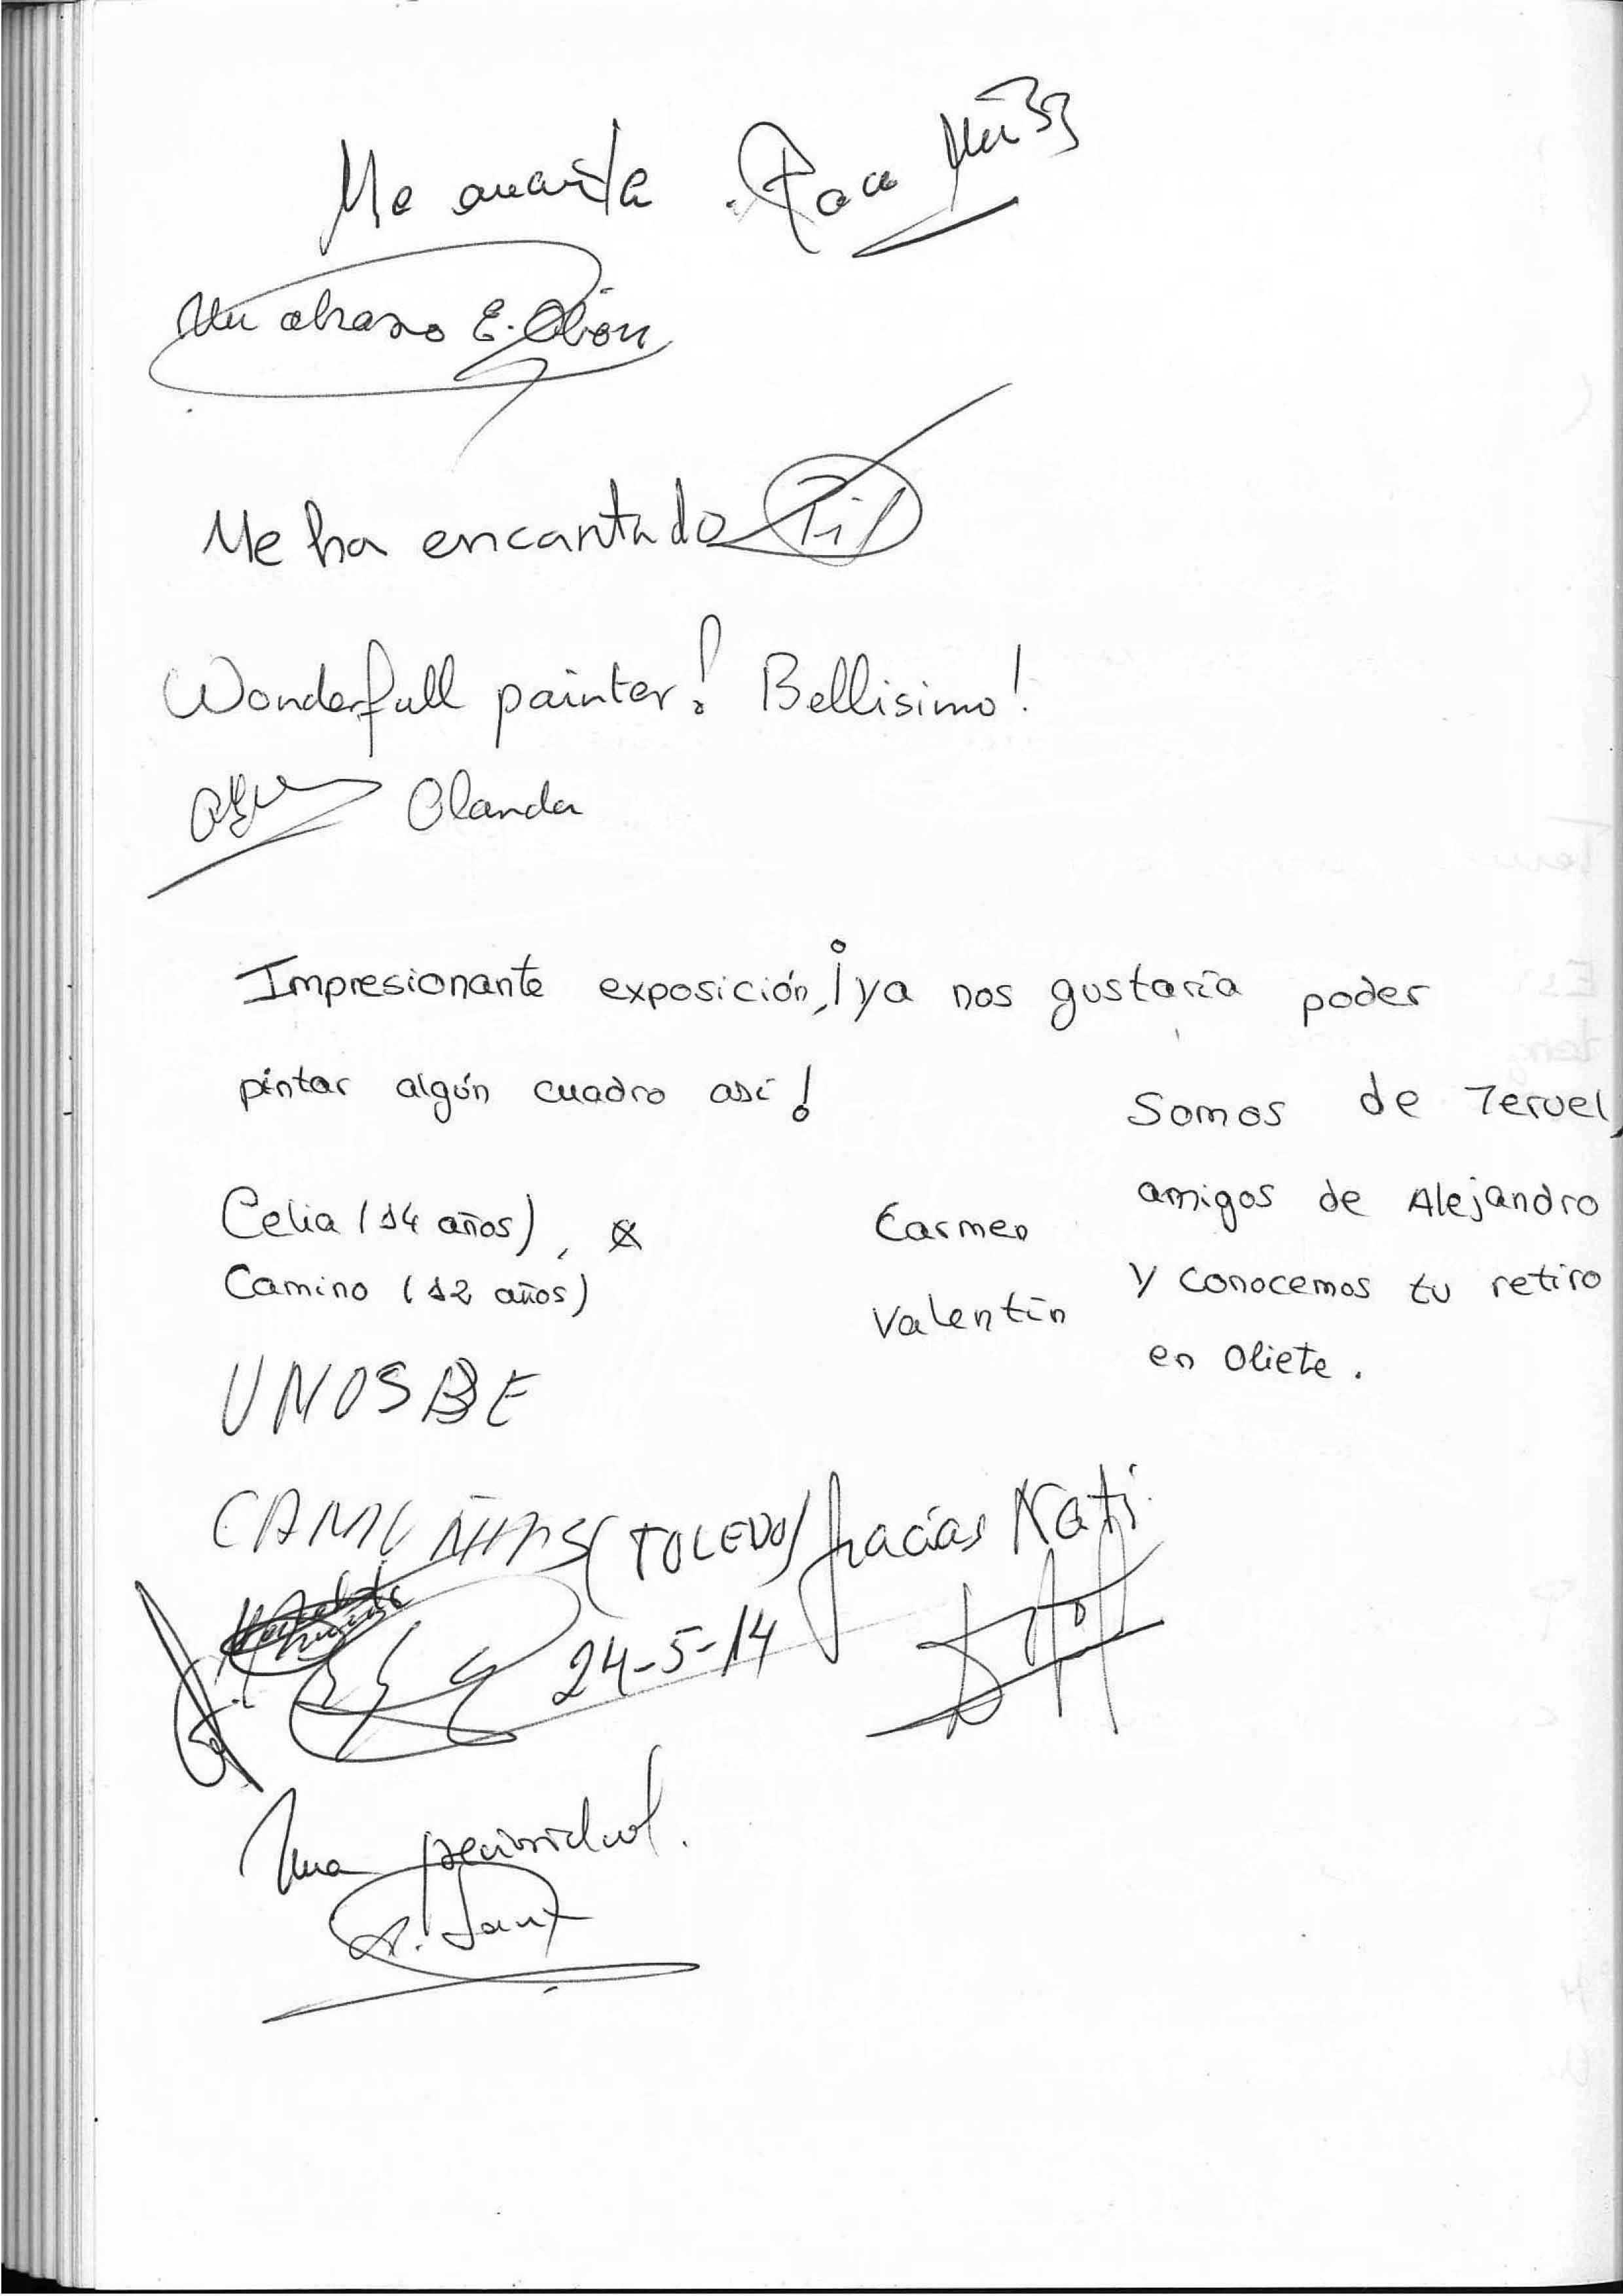 Me encanta
Un abrazo E. Obón
Me ha encantado Pil
Wonderfull painter! Bellisimo!
Olanda
Impresionante exposición, ¡ya nos gustaría poder
pintar algún cuadro así!
Celia (14 años),
Camino (12 años)
Carmen
Valentín
Somos de Teruel,
amigos de Alejandro
y conocemos tu retiro
en Oliete.
UNOS BE
CAMUÑAS (TOLEDO) gracias Nati
24-5-14
Una preciosidad.
A. Sanz